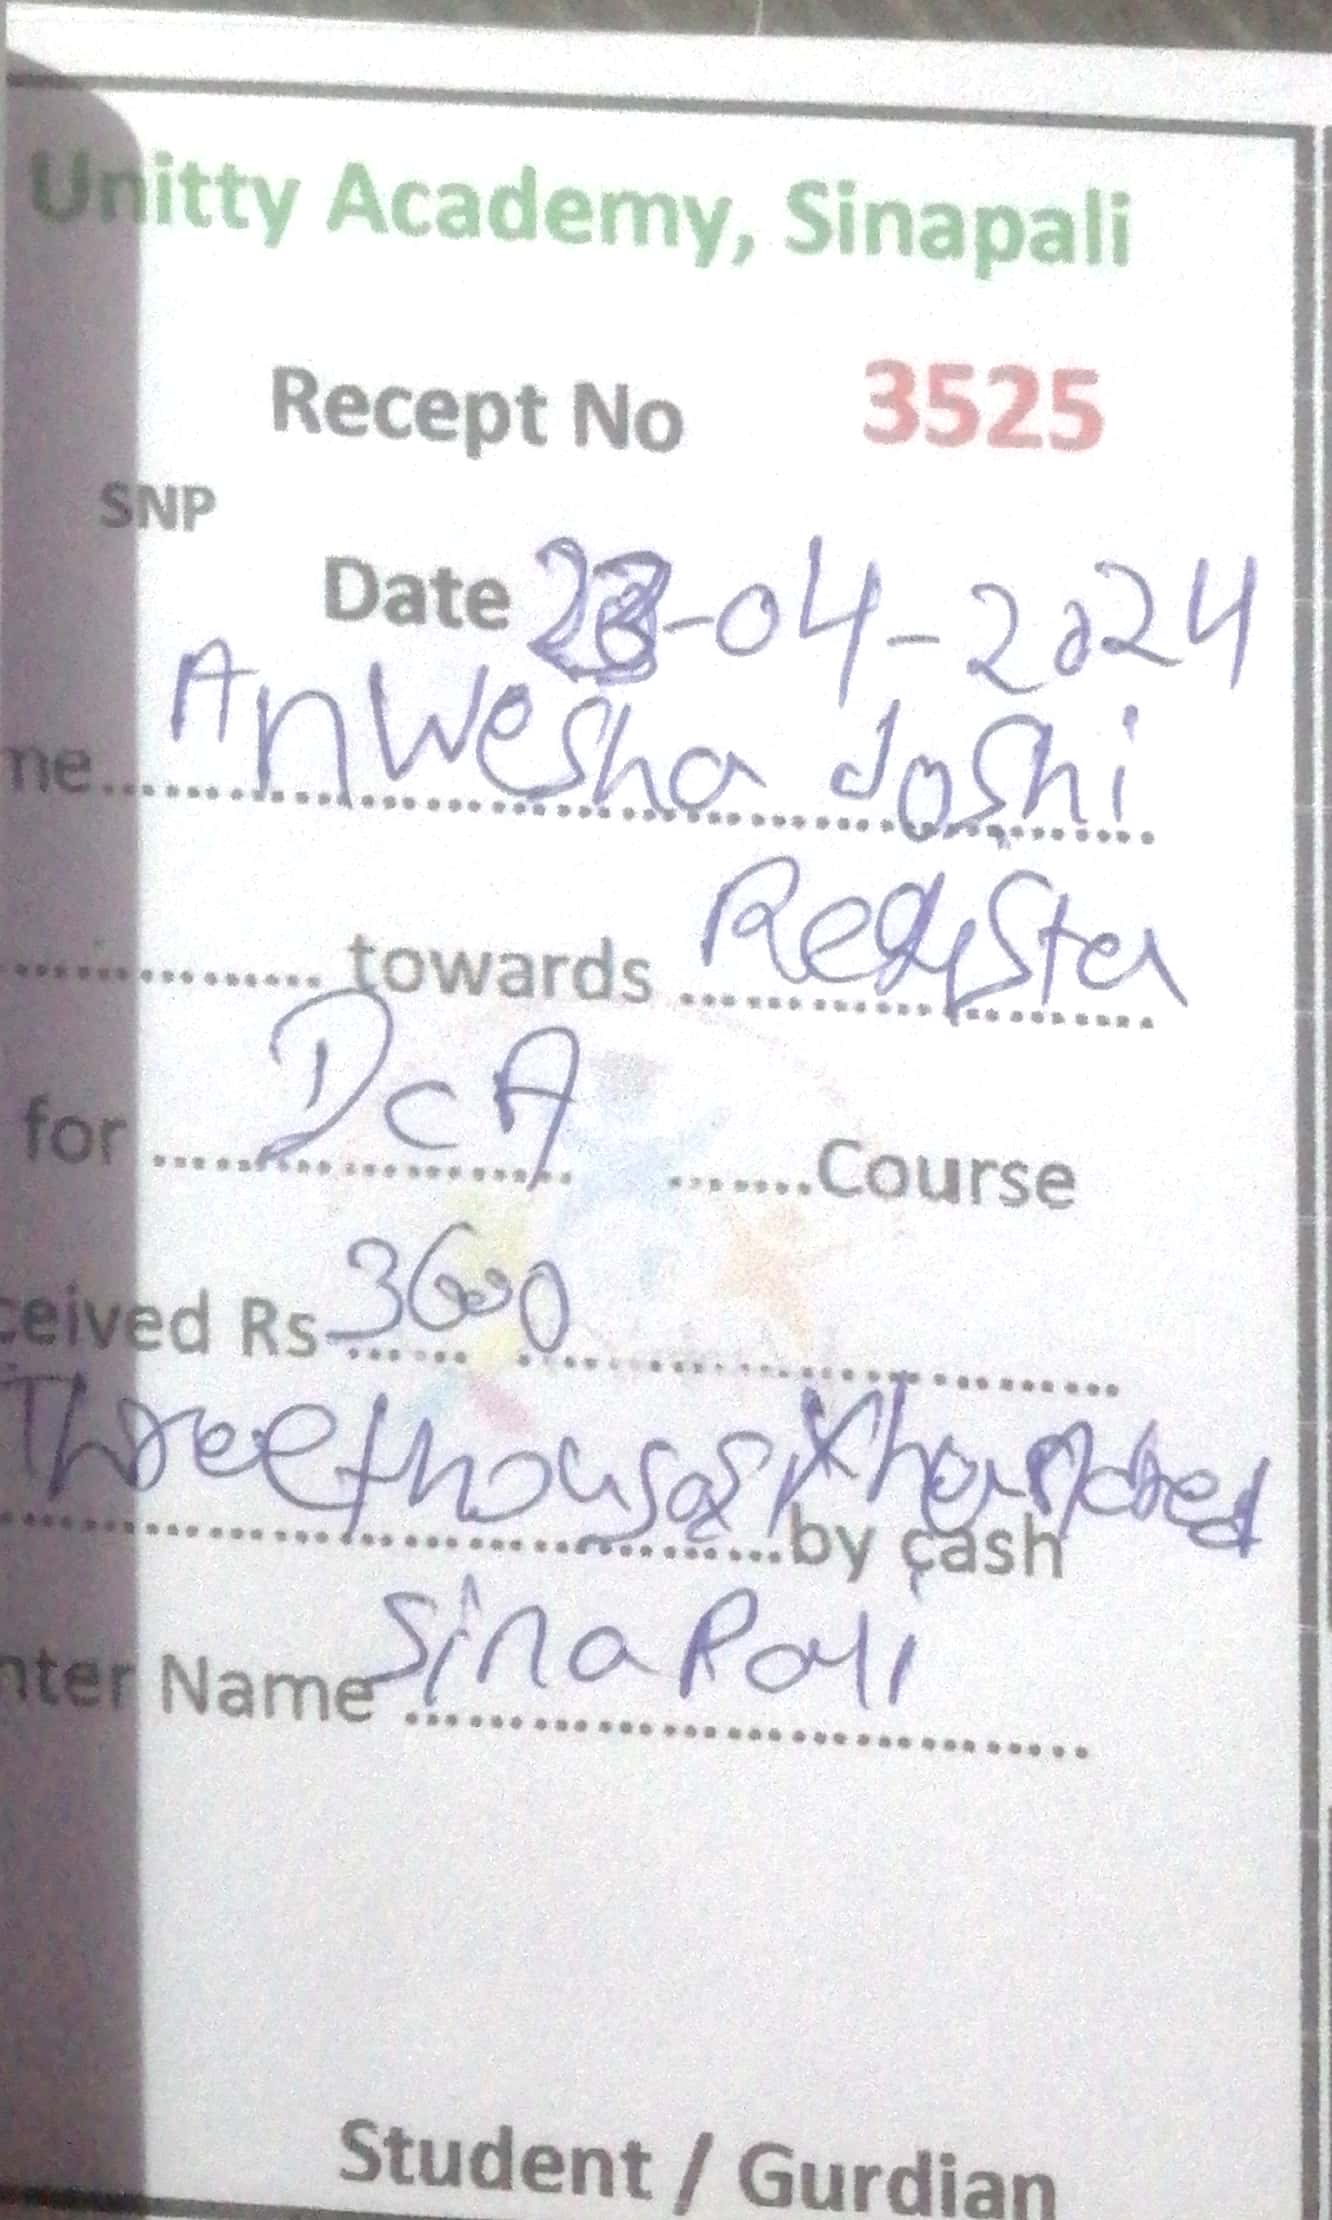 Unitty Academy, Sinapali
Recept No 3525
SNP
Date 23-04-2024
me Anwesha Joshi
towards Register
for DCA Course
ceived Rs 3600
Three thousasixhundred
by cash
nter Name Sinapali
Student / Gurdian